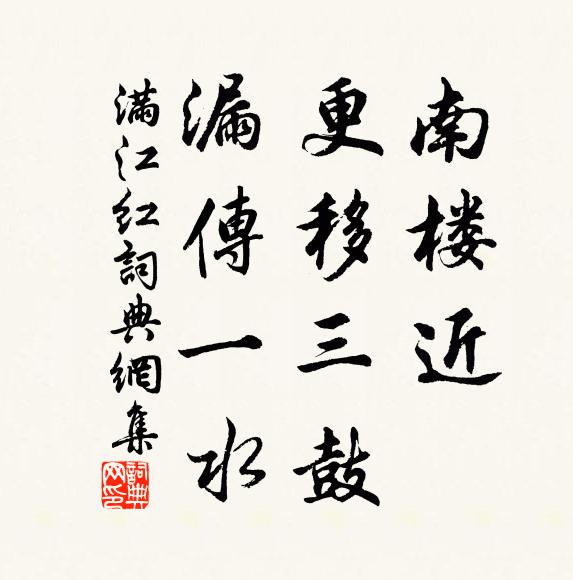 南楼近
更移三鼓
漏傳一水
滿江紅詞典網集
詞典
网印